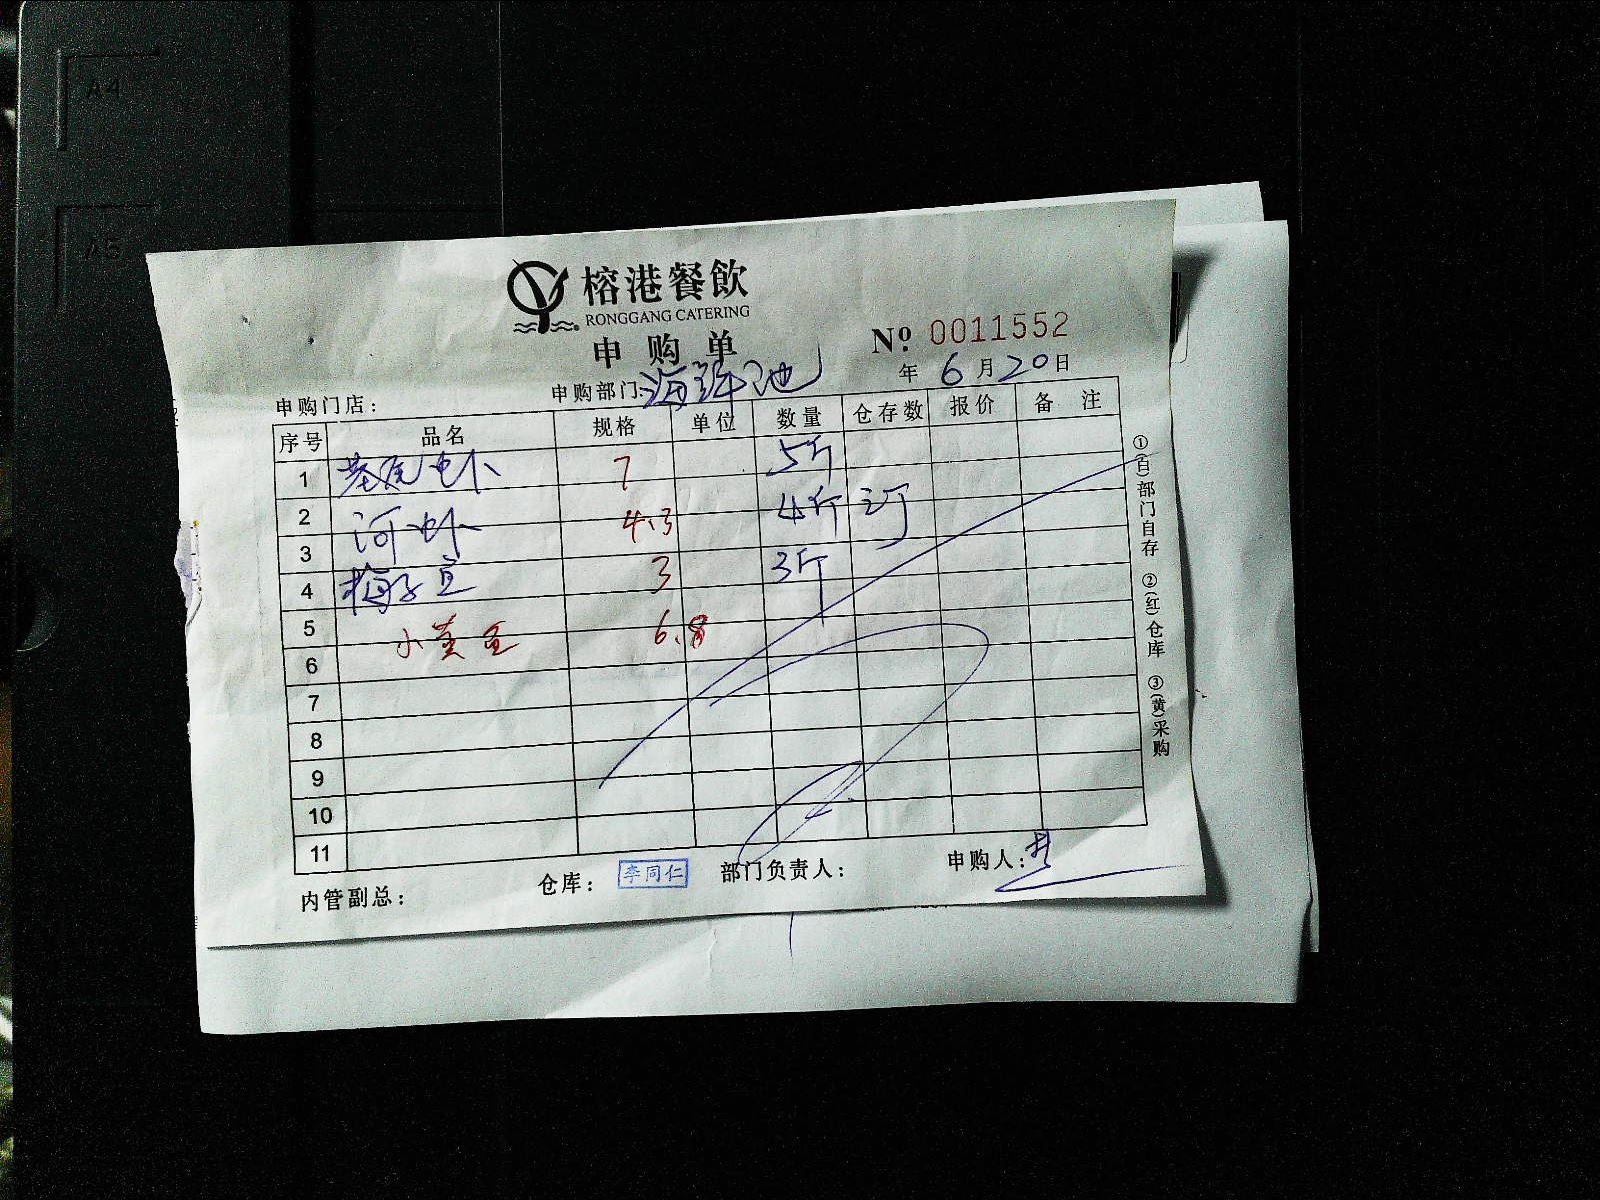 A4
A5
榕港餐飲
RONGGANG CATERING
申购单
№ 0011552
年 6 月 20 日
申购门店： 申购部门：海鲜池
序号 品名 规格 单位 数量 仓存数 报价 备注
1 基尾虾 7 5斤
2 河虾 4.3 4斤
3
4 梅子鱼 3 3斤
5 小黄鱼 6.8
6
7
8
9
10
11
内管副总： 仓库： 李同仁 部门负责人： 申购人：
①(白)部门自存 ②(红)仓库 ③(黄)采购